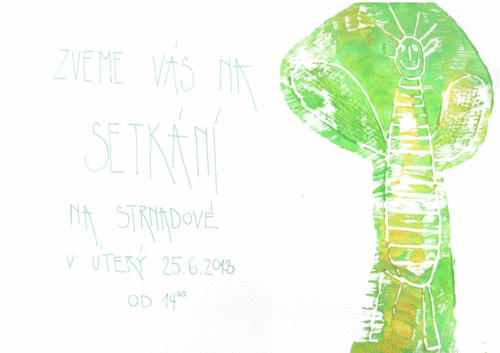 ZVEME VÁS NA
SETKÁNÍ
NA STRNADOVĚ
V ÚTERÝ 25.6.2013
OD 14⁰⁰